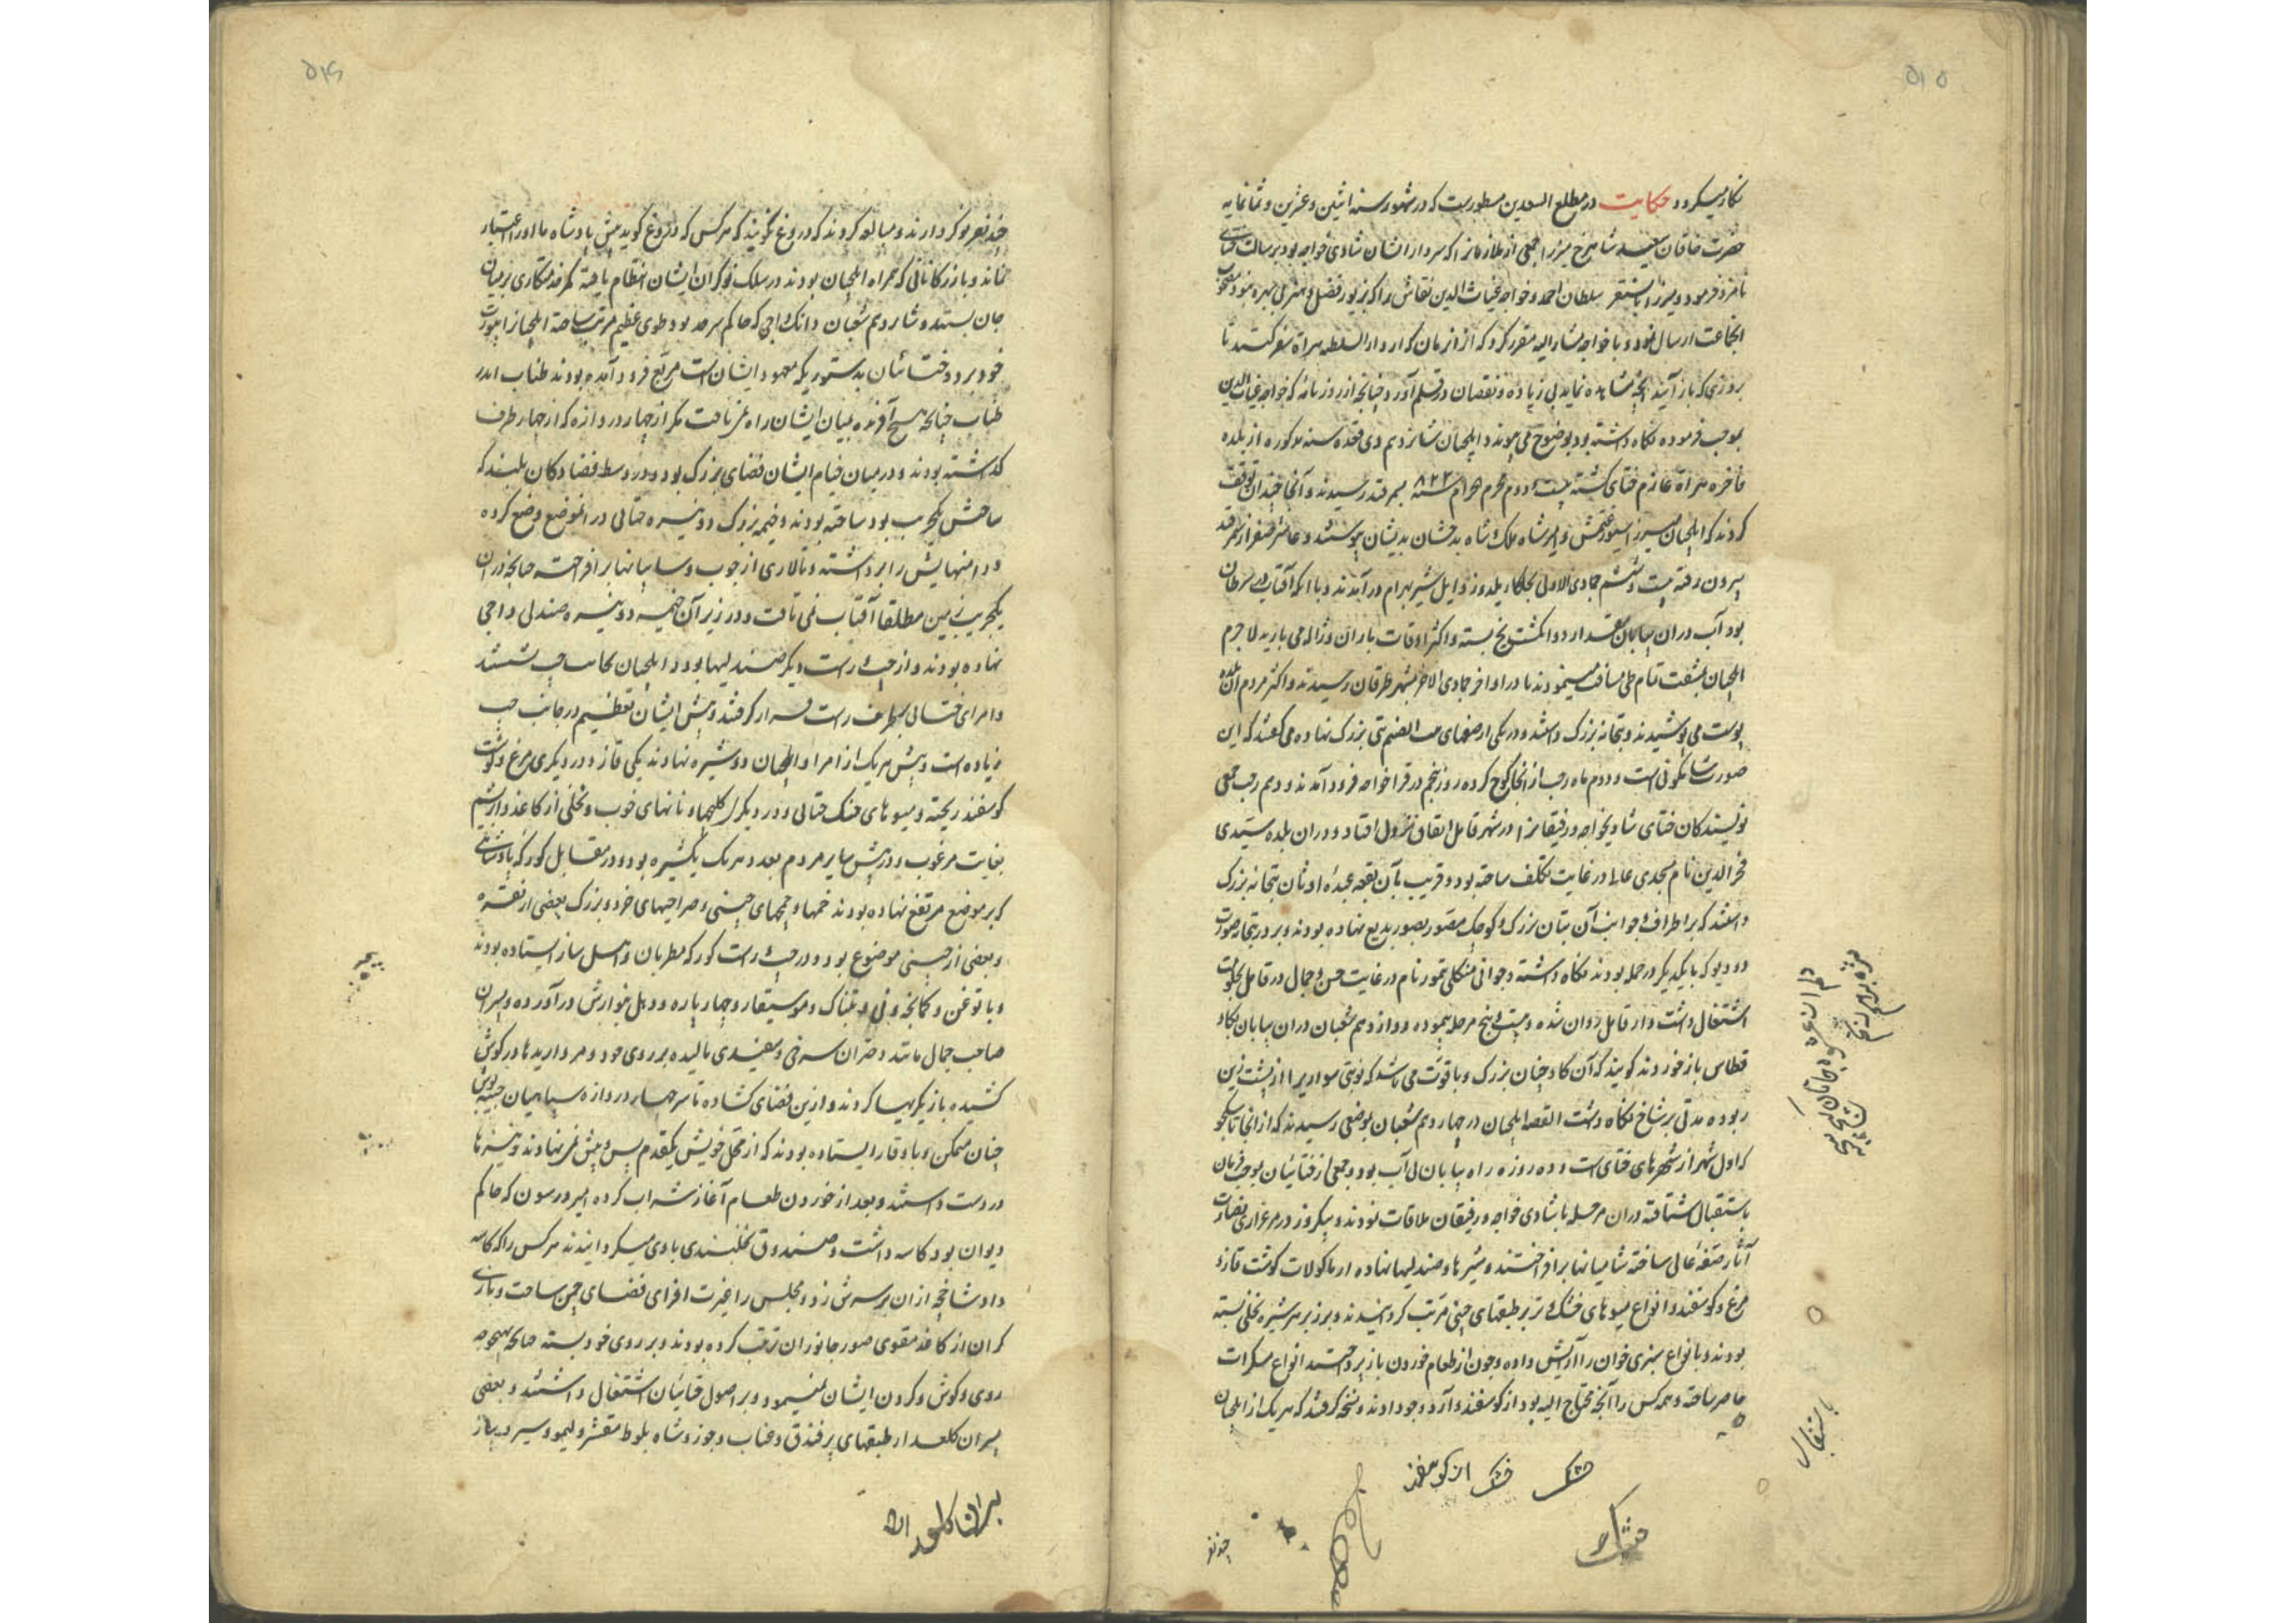 ۵۱۵
نکار میکردد حکایت در مطلع السعدین مسطورست که در شهور سنه اثنین و عشرین و ثمانمایه
حضرت خاقان سعید شاهرخ میرزا جمعی از ملازمانرا که سردار ایشان شادی خواجه بود برسالت ختای
نامزد فرمود و میرزا بایسنقر سلطان احمد و خواجه غیاث الدین نقاش را که از زیور فضل و هنر بی بهره نبود مصحوب
انجماعت ارسال نمود و با خواجه مشار الیه مقرر کرد که از آنزمان که از دار السلطنه هراة سفر کنند تا
بروزی که باز آیند آنچه مشاهده نماید بی زیاده و نقصان در قلم آورد چنانچه از روزنامه که خواجه غیاث الدین
بموجب فرموده نکاه داشته بود بوضوح می پیوندد ایلچیان شانزدهم ذی قعده سنه مذکوره از بلده
فاخره هراة عازم ختای کشته بیست و دوم محرم الحرام سنه ۸۲۳ بسمرقند رسیدند و آنجا چندان توقف
کردند که ایلچیان میرزا سیورغتمش و امیر شاه ملک و شاه بدخشان بدیشان پیوستند و عاشر صفر از سمرقند
بیرون رفته بیست و ششم جمادی الاولی بجلکاه یلدوز و ایل شیر بهرام درآمدند و با آنکه آفتاب در سرطان
بود آب دران بیابان مقدار دو انکشت یخ بسته و اکثر اوقات باران و ژاله می بارید لاجرم
ایلچیان بمشقت تمام طی مسافت مینمودند تا در اواخر جمادی الاخر بشهر طرقان رسیدند و اکثر مردم آن بلده
بت می پرستیدند و بتخانه بزرک داشتند و در یکی از صفهای بیت الصنم بتی بزرک نهاده می کفتند که این
صورت شاکمونی است و دوم ماه رجب از آنجا کوچ کرده روز پنجم در قراخواجه فرود آمدند و دهم رجب جمعی
نویسندکان ختای شادیخواجه و رفیقانرا در شهر قامل اتفاق نزول افتاد و دران بلده سیدی
فخر الدین نام مسجدی عالی در غایت تکلف ساخته بود و قریب بآن بقعه عبده اوثان بتخانه بزرک
داشتند که بر اطراف و جوانب آن بتان بزرک و کوچک مصور بصور بدیع نهاده بودند و بر در بتخانه صورت
دو دیو که بایکدیکر در حمله بودند نکاه داشته و جوانی منکلی تیمور نام در غایت حسن و جمال در قامل بحکومت
اشتغال داشت و از قامل روان شده و بیست و پنج مرحله پیموده دوازدهم شعبان دران بیابان بکاو
قطاس باز خوردند کویند که آن کاو چنان بزرک و با قوت می باشد که نوبتی سواریرا از پشت زین
ربوده مدتی بر شاخ نکاه داشت القصه ایلچیان در چهاردهم شعبان بموضعی رسیدند که از آنجا تا سکجو
که اول شهر از شهرهای ختای است و ده روزه راه بیابان بی آب بود و جمعی از ختائیان بموجب فرمان
باستقبال شتافته دران مرحله با شادی خواجه و رفیقان ملاقات نمودند و بیکروز در مرغزاری نضارت
آثار صفه عالی ساخته شامیانها برافراختند و شیرها و صندلیها نهاده از ماکولات کوشت قاز و
مرغ و کوسفند و انواع میوهای خشک و تر بر طبقهای چینی مرتب کردانیدند و بر زبر هر شیره نخلی بسته
بودند و بانواع سبزی خوان را آرایش داده و چون از طعام خوردن باز پرداختند انواع مسکرات
حاضر ساخته و همه کس را آنچه محتاج الیه بود از کوسفند و آرد و جو دادند و نسخه کرفتند که هر یک از ایلچیان
خشک خشک از کوسفند
چند نفر
باستقبال
۵۱۶
چند نفر نوکر دارند و مبالغه کردند که دروغ نکویند که هر کس که دروغ کوید پیش پادشاه ما او را اعتبار
نماند و بازرکانانی که همراه ایلچیان بودند در سلک نوکران ایشان انتظام یافته کمر خدمتکاری بر میان
جان بستند و شانزدهم شعبان دانک داجی که حاکم سرحد بود طوی عظیم مرتب ساخته ایلچیانرا بیورت
خود برد و ختائیان بدستوری که معهود ایشان است مربع فرود آمده بودند طناب اندر
طناب چنانچه هیچ آفریده بمیان ایشان راه نمی یافت مکر از چهار دروازه که از چهار طرف
کذاشته بودند و در میان خیام ایشان فضای بزرک بود و در وسط فضا دکان بلند که
ساحتش یکجریب بود ساخته بودند و خیمه بزرک دو نیزه ختائی در آنموضع وضع کرده
و دامنهایش را برداشته و تالاری از چوب و سایبانها برافراخته چنانچه در آن
یکجریب زمین مطلقا آفتاب نمی تافت و در زیر آن خیمه دو نیزه صندلی داجی
نهاده بودند و از چپ و راست دیکر صندلیها بود و ایلچیان بجانب چپ نشستند
و امرای ختائی بطرف راست قرار کرفتند و پیش ایشان تعظیم در جانب چپ
زیاده است و پیش هر یک از امرا و ایلچیان دو شیره نهادند یکی قاز و در دیکری مرغ و کوشت
کوسفند ریخته و میوهای خشک ختائی و در دیکری کلیچها و نانهای خوب و نخلی از کاغذ و ابریشم
بغایت مرغوب و در پیش سایر مردم بعدد هر یک یکشیره بود و در مقابل کورکه پادشاهی
که بر موضع مرتفع نهاده بودند خمها و خمچهای چینی و صراحیهای خرد و بزرک بعضی از نقره
و بعضی از چینی موضوع بود و در چپ و راست کورکه مطربان و اهل ساز ایستاده بودند
و یاتوغن و کمانچه و نی و تنبک و موسیقار و چهار پاره و دهل بنوازش درآورده و پسران
صاحب جمال مانند دختران سرخی و سفیدی مالیده بر روی خود و مرواریدها در کوش
کشیده بازیکریها کردند و ازین فضای کشاده تا سر چهار دروازه سپاهیان جیبه پوش
چنان متمکن و با وقار ایستاده بودند که از محل خویش یکقدم پس و پیش نمی نهادند و نیزها
در دست داشتند و بعد از خوردن طعام آغاز شراب کرده امیر ورسون که حاکم
دیوان بود کاسه داشت و صندوق نخلبندی با وی میکردانیدند هر کس را که کاسه
داد شاخچه ازان بر سرش زد و مجلس را غیرت افزای فضای چمن ساخت و بازی
کران از کاغذ مقوی صور جانوران ترتیب کرده بودند و بر روی خود بسته چنانچه بهیچوجه
روی و کوش و کردن ایشان نمینمود و بر اصول ختائیان اشتغال داشتند و بعضی
پسران کلعذار طبقهای پر فندق و عناب و جوز و شاه بلوط مقشر و لیمو و سیر و پیاز